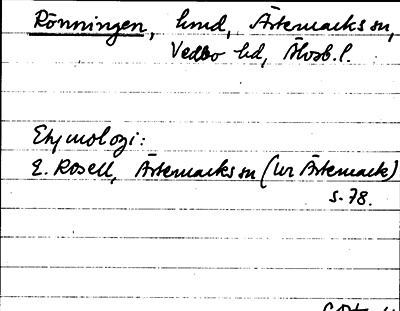 Rönningen, hmd, Ärtemarks sn,
Vedbo hd, Älvsb. l.
Etymologi:
E. Rosell, Ärtemarks sn (ur Ärtemark)
s. 78.